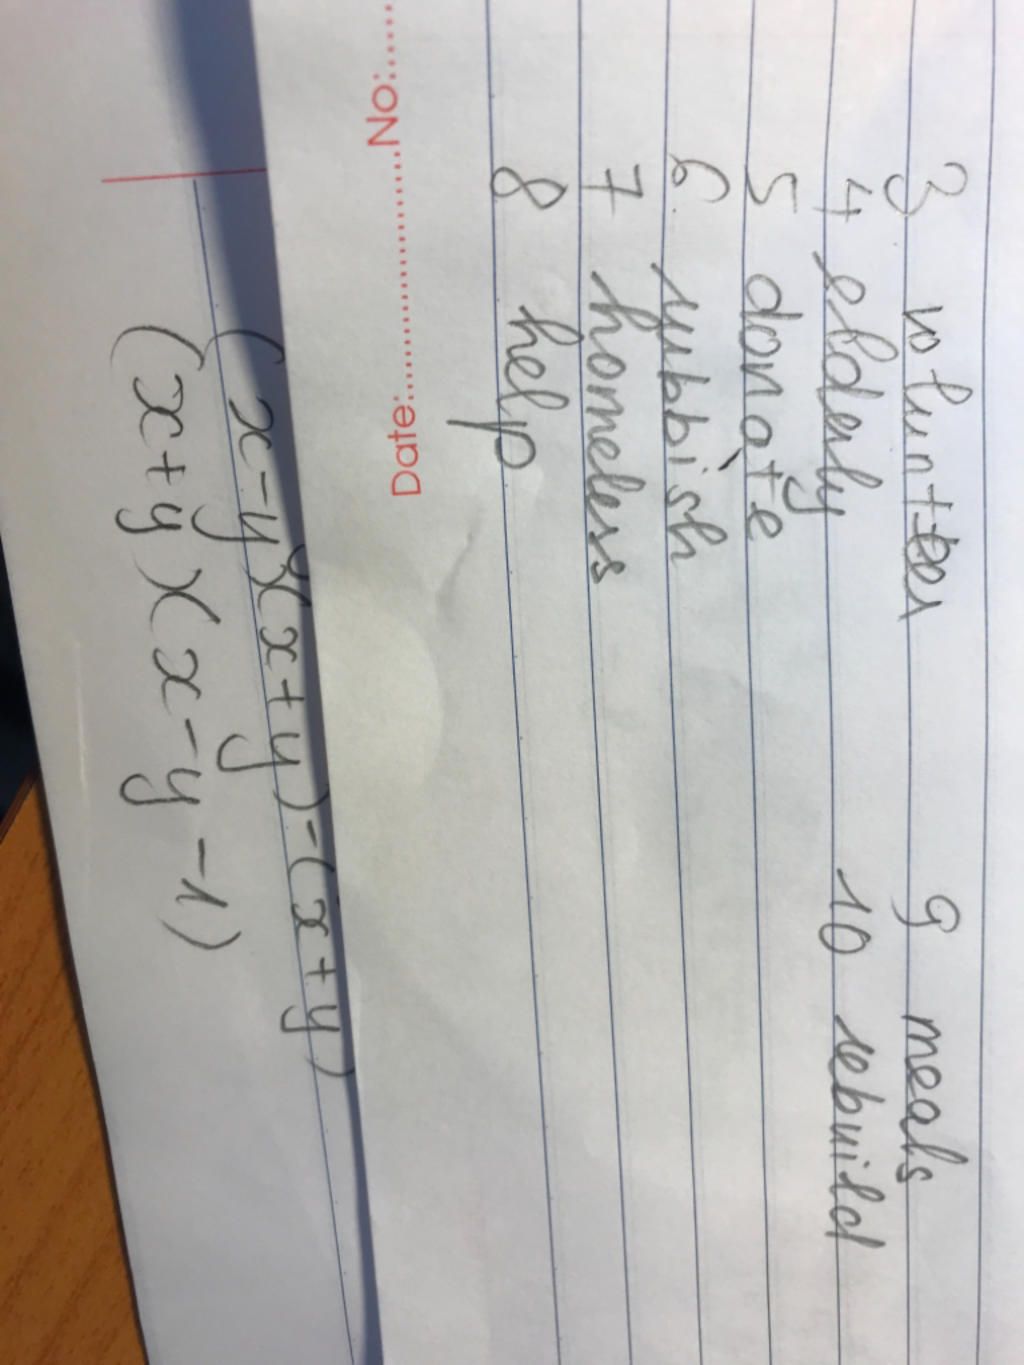 3 volunteer 9 meals
4 elderly 10 rebuild
5 donate
6. rubbish
7 homeless
8 help
No:............ Date:............
(x-y)(x+y)-(x+y)
(x+y)(x-y-1)